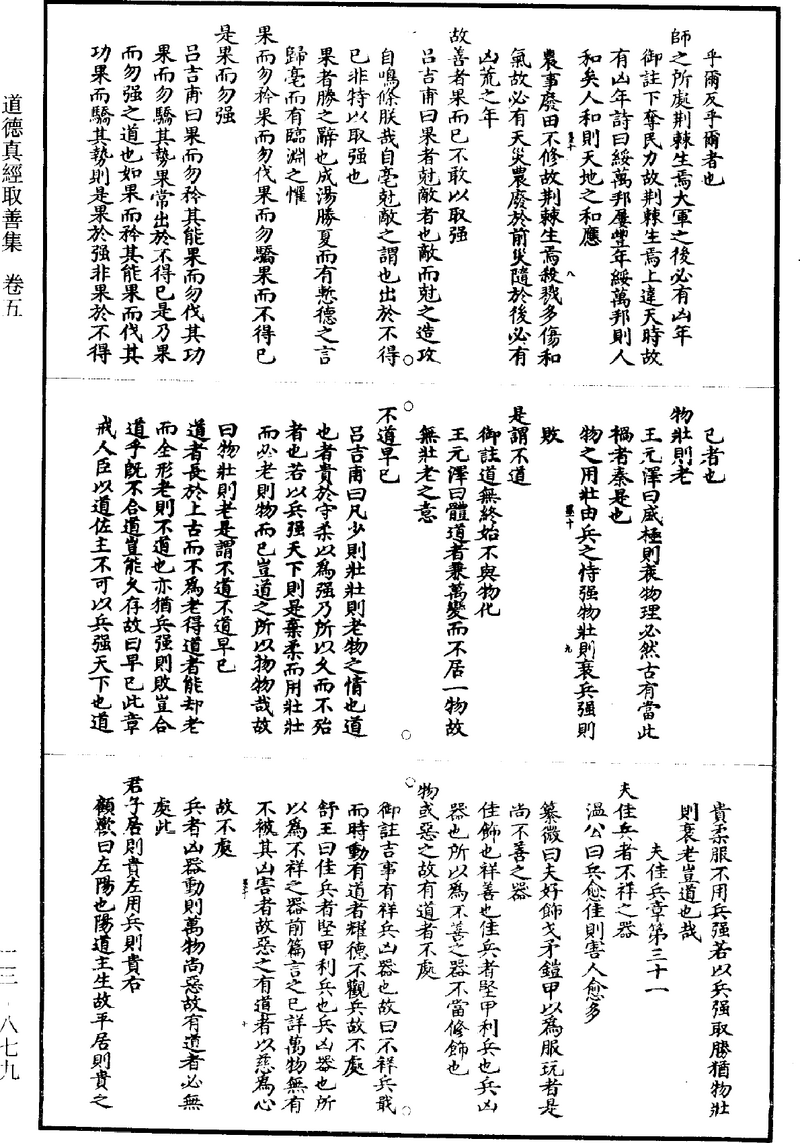 道德真經取善集　卷五
一三・八七九
乎爾反乎爾者也
師之所處荆棘生焉大軍之後必有凶年
御註下奪民力故荆棘生焉上違天時故
有凶年詩曰綏萬邦屢豐年綏萬邦則人
和矣人和則天地之和應
農事廢田不修故荆棘生焉殺戮多傷和
氣故必有天災農廢於前災隨於後必有
凶荒之年
故善者果而已不敢以取强
吕吉甫曰果者尅敵者也敵而尅之造攻
自鳴條朕哉自亳尅敵之謂也出於不得
已非特以取强也
果者勝之辭也成湯勝夏而有慙德之言
歸亳而有臨淵之懼
果而勿矜果而勿伐果而勿驕果而不得已
是果而勿强
吕吉甫曰果而勿矜其能果而勿伐其功
果而勿驕其勢果常出於不得已是乃果
而勿强之道也如果而矜其能果而伐其
功果而驕其勢則是果於强非果於不得
已者也
物壯則老
王元澤曰盛極則衰物理必然古有當此
禍者秦是也
物之用壯由兵之恃强物壯則衰兵强則
敗
是謂不道
御註道無終始不與物化
王元澤曰體道者兼萬變而不居一物故
無壯老之意
不道早已
吕吉甫曰凡少則壯壯則老物之情也道
也者貴於守柔以為强乃所以久而不殆
者也若以兵强天下則是棄柔而用壯壯
而必老則物而已豈道之所以物物哉故
曰物壯則老是謂不道不道早已
道者長於上古而不為老得道者能却老
而全形老則不道也亦猶兵强則敗豈合
道乎既不合道豈能久存故曰早已此章
戒人臣以道佐主不可以兵强天下也道
貴柔服不用兵强若以兵强取勝猶物壯
則衰老豈道也哉
夫佳兵章第三十一
夫佳兵者不祥之器
溫公曰兵愈佳則害人愈多
纂微曰夫好飾戈矛鎧甲以為服玩者是
尚不善之器
佳飾也祥善也佳兵者堅甲利兵也兵凶
器也所以為不善之器不當修飾也
物或惡之故有道者不處
御註吉事有祥兵凶器也故曰不祥兵戢
而時動有道者耀德不觀兵故不處
舒王曰佳兵者堅甲利兵也兵凶器也所
以為不祥之器前篇言之已詳萬物無有
不被其凶害者故惡之有道者以慈為心
故不處
兵者凶器動則萬物尚惡故有道者必無
處此
君子居則貴左用兵則貴右
顧歡曰左陽也陽道主生故平居則貴之